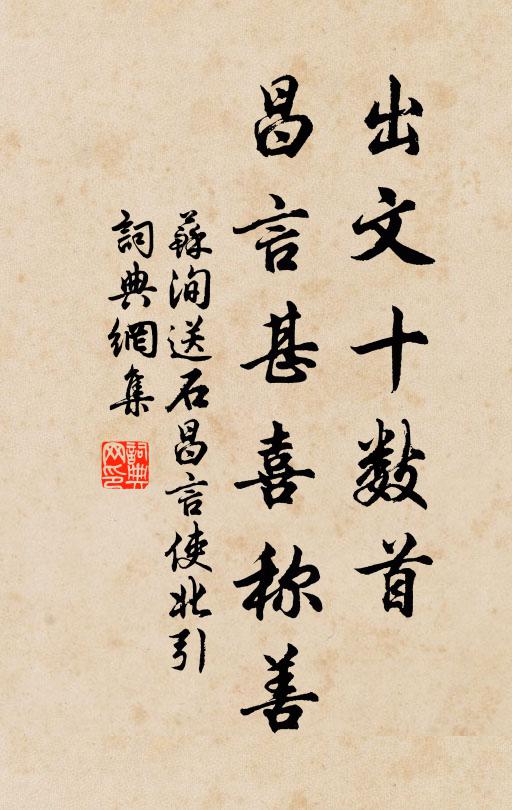 出文十数首
昌言甚喜称善
蘇洵送石昌言使北引
詞典網集
詞典网印